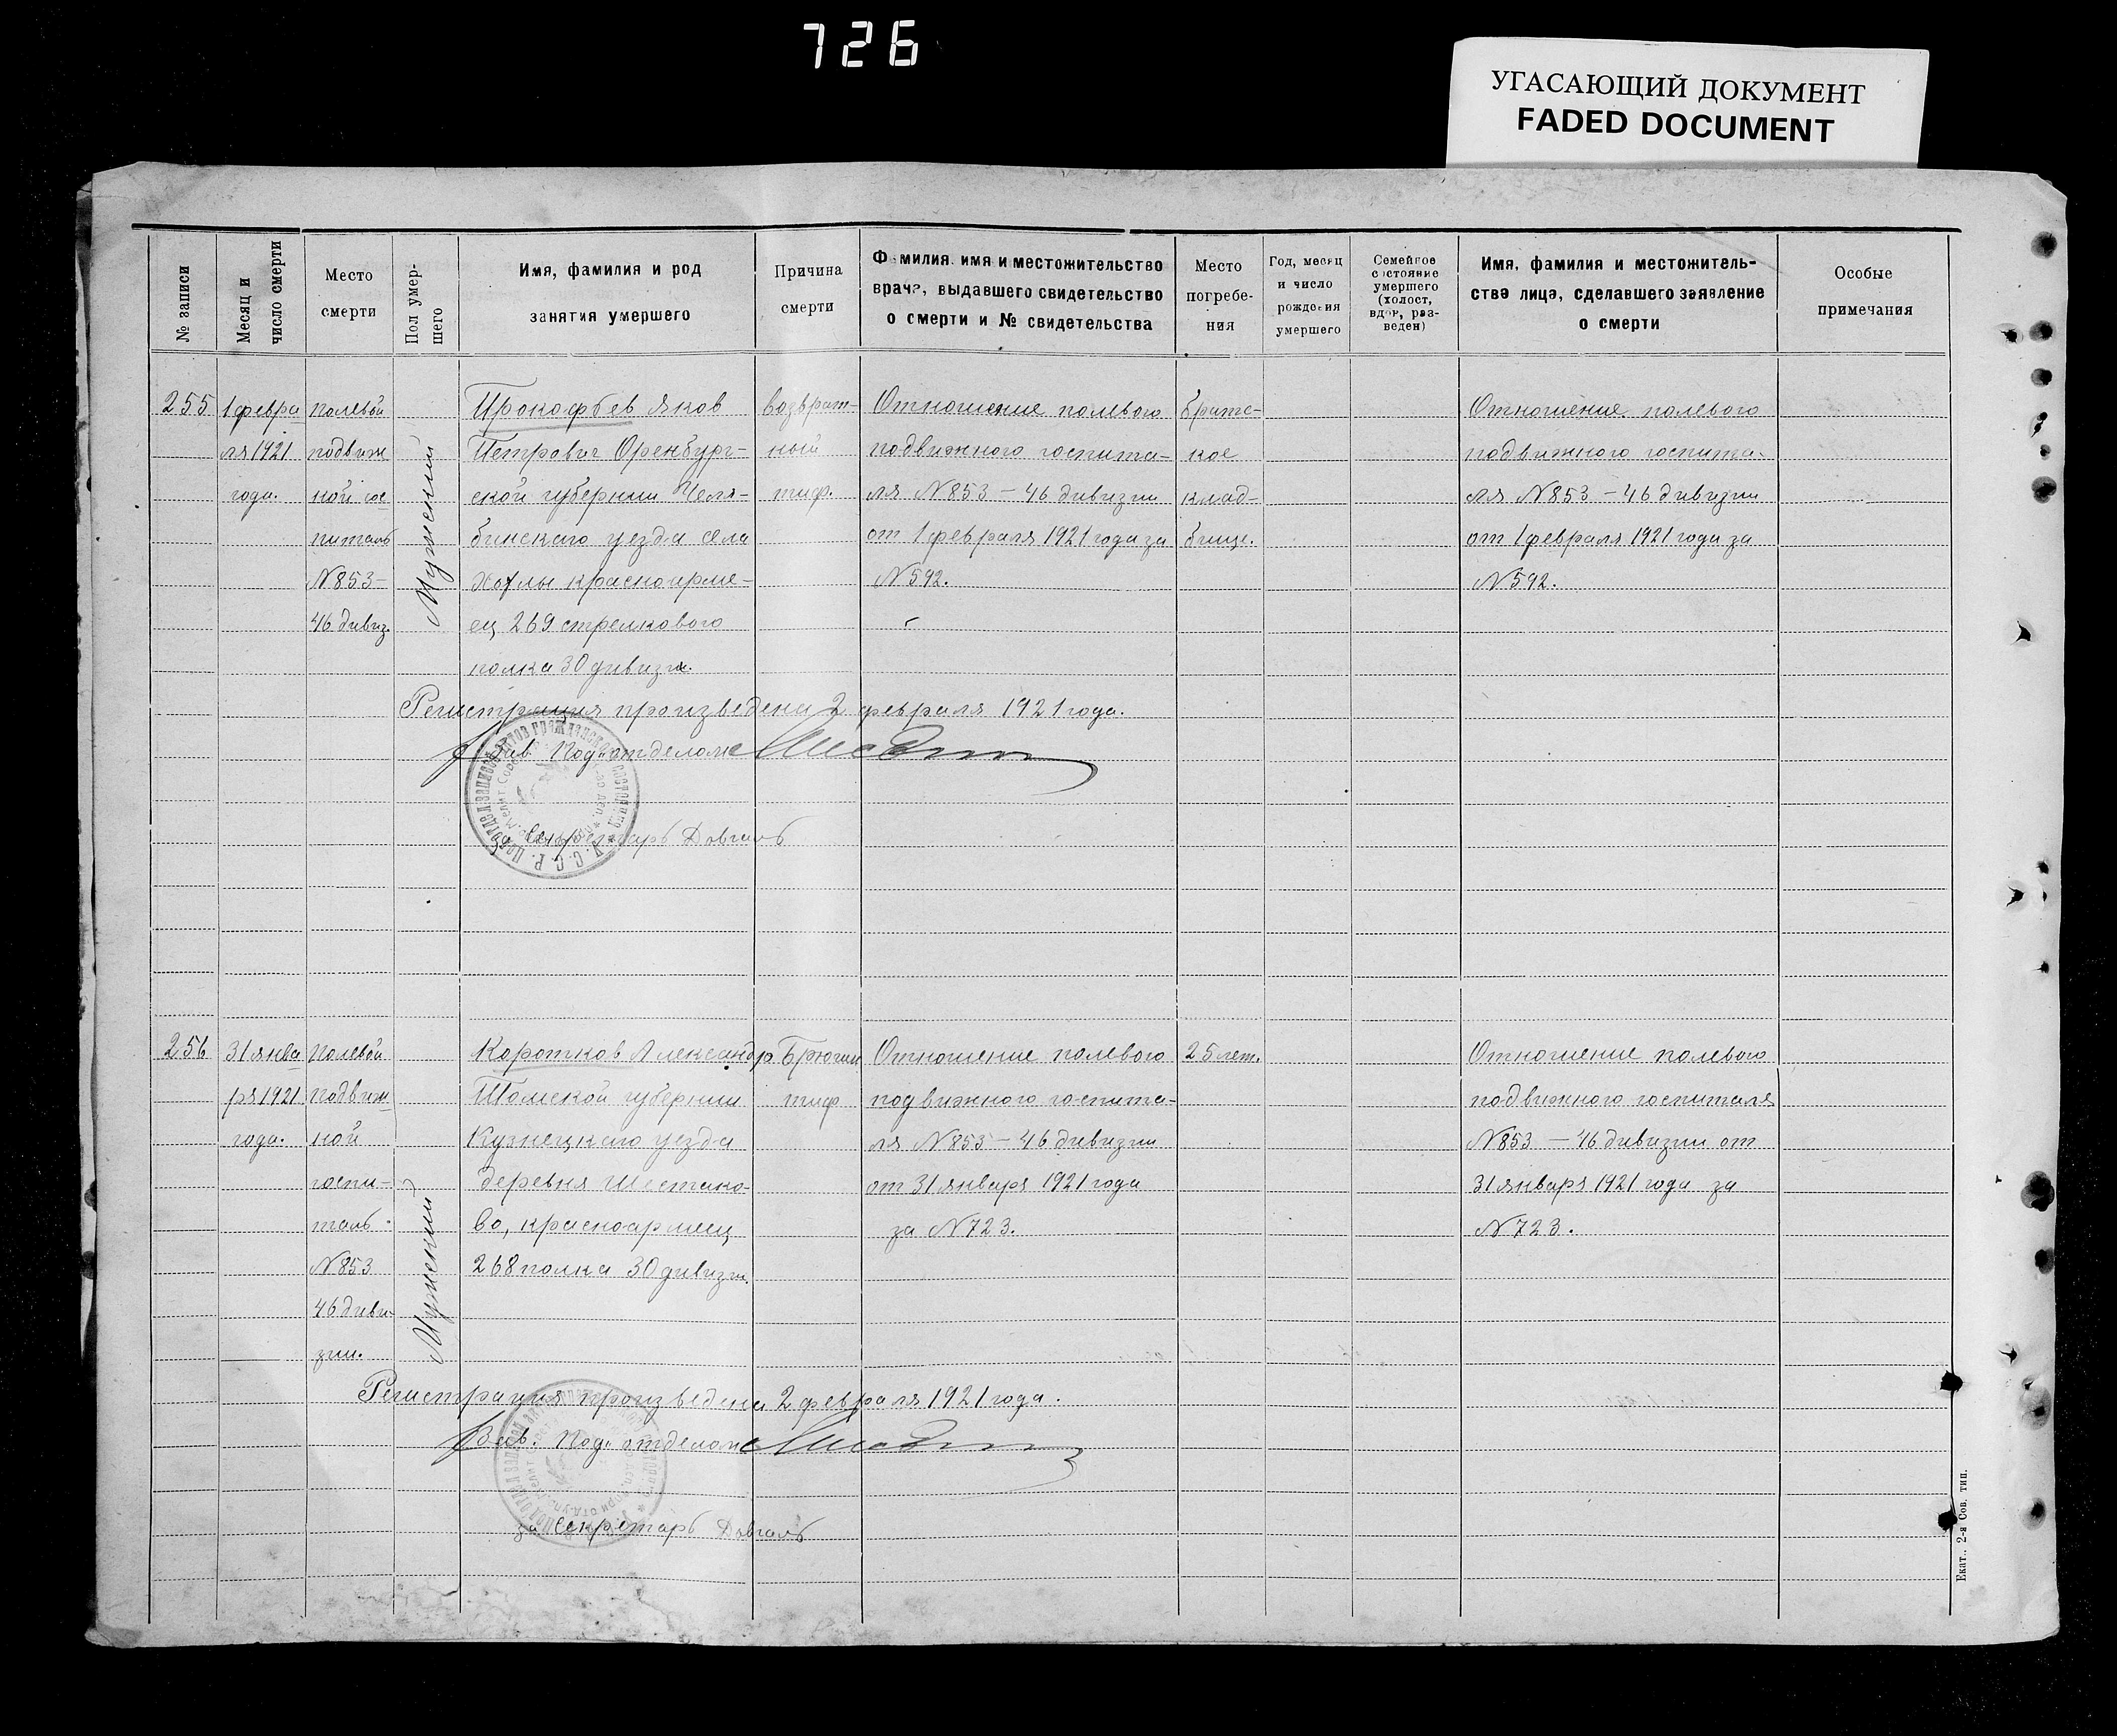 726
УГАСАЮЩИЙ ДОКУМЕНТ
FADED DOCUMENT
№ записи
Месяц и
число смерти
Место
смерти
Пол умер-
шего
Имя, фамилия и род
занятия умершего
Причина
смерти
Фамилия, имя и местожительство
врача, выдавшего свидетельство
о смерти и № свидетельства
Место
погребе-
ния
Год, месяц
и число
рождения
умершего
Семейное
состояние
умершего
(холост,
вдов, раз-
веден)
Имя, фамилия и местожитель-
ства лица, сделавшего заявление
о смерти
Особые
примечания
255
1 февра
ля 1921
года.
полевой
подвиж
ной гос
питаль
№ 853 –
46 дивиз.
Мужений
Прокофьев Яков
Петрович Оренбург-
ской губернии Челя-
бинскаго уезда села
красноарме-
ец 269 стрелкового
полка 30 дивизи.
возврат-
ный
тиф.
Отношение полевого
подвижного госпита-
ля № 853 – 46 дивизии
от 1 февраля 1921 года за
№ 592.
братс-
кое
клад-
бище.
Отношение полевого
подвижного госпита-
ля № 853 – 46 дивизии
от 1 февраля 1921 года за
№ 592.
Регистрация произведена 2 февраля 1921 года.
Зав. Под. отделом
за Секретарь Довгаль
256
31 янва
ря 1921
года.
Полевой
подвиж
ной
госпи-
таль
№ 853
46 диви-
зии.
Мужений
Коротков Александр
Томской губернии
Кузнецкаго уезда
деревня Шестако-
во, красноармеец
268 полка 30 дивизии
Брюшн
тиф
Отношение полевого
подвижного госпита-
ля № 853 – 46 дивизии
от 31 января 1921 года
за № 723.
25 лет.
Отношение полевого
подвижного госпиталя
№ 853 – 46 дивизии от
31 января 1921 года за
№ 723.
Регистрация произведена 2 февраля 1921 года.
Зав. Под. отделом
за Секретарь Довгаль
Екат., 2-я Сов. тип.